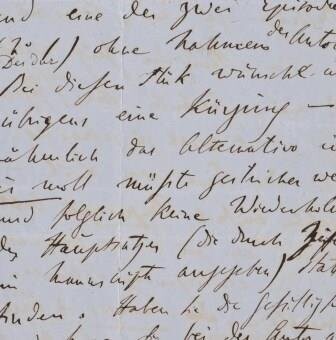 und eine der zwei Episode
ohne Nahmen des Autor
Bei diesem Stük wünscht
übrigens eine Kürzung —
nähmlich das Alternativo
moll müßte gestrichen we
und folglich keine Wiederhol
des Hauptsatzes (die durch
im Manuscripte angegeben)
finden. Haben Sie die
bei der